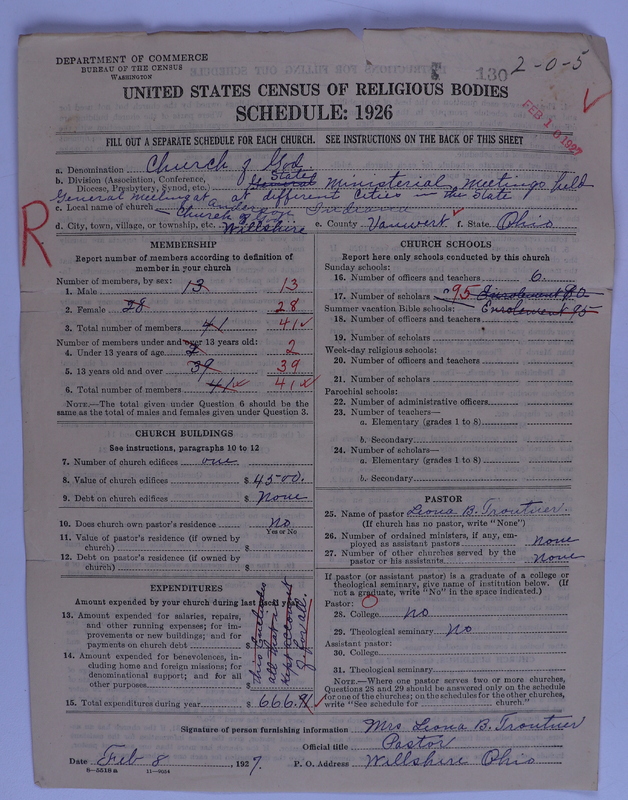 DEPARTMENT OF COMMERCE
BUREAU OF THE CENSUS
WASHINGTON
130
2-0-5
UNITED STATES CENSUS OF RELIGIOUS BODIES
SCHEDULE: 1926
FEB 10 1927
FILL OUT A SEPARATE SCHEDULE FOR EACH CHURCH. SEE INSTRUCTIONS ON THE BACK OF THIS SHEET
a. Denomination Church of God
b. Division (Association, Conference, Diocese, Presbytery, Synod, etc.) General State Ministerial Meetings held
General Meeting at at different Cities in the State
c. Local name of church Church of God
d. City, town, village, or township, etc. Willshire e. County Vanwert f. State Ohio
R
MEMBERSHIP
Report number of members according to definition of
member in your church
Number of members, by sex:
1. Male 13 13
2. Female 28 28
3. Total number of members 41 41
Number of members under and over 13 years old:
4. Under 13 years of age 2 2
5. 13 years old and over 39 39
6. Total number of members 41 41
NOTE.—The total given under Question 6 should be
same as the total of males and females given under Question 3.
CHURCH BUILDINGS
See instructions, paragraphs 10 to 12
7. Number of church edifices one
8. Value of church edifices $ 4500.
9. Debt on church edifices $ None
10. Does church own pastor's residence No
Yes or No
11. Value of pastor's residence (if owned by
church) $
12. Debt on pastor's residence (if owned by
church) $
EXPENDITURES
Amount expended by your church during last fiscal year
13. Amount expended for salaries, repairs,
and other running expenses; for im-
provements or new buildings; and for
payments on church debt $
14. Amount expended for benevolences, in-
cluding home and foreign missions; for
denominational support; and for all
other purposes $
this includes
all that is
kept account
of for all.
15. Total expenditures during year $ 666.91
CHURCH SCHOOLS
Report here only schools conducted by this church
Sunday schools:
16. Number of officers and teachers 6
17. Number of scholars 95 Enrolement
Summer vacation Bible schools: Enrolement 95
18. Number of officers and teachers
19. Number of scholars
Week-day religious schools:
20. Number of officers and teachers
21. Number of scholars
Parochial schools:
22. Number of administrative officers
23. Number of teachers—
a. Elementary (grades 1 to 8)
b. Secondary
24. Number of scholars—
a. Elementary (grades 1 to 8)
b. Secondary
PASTOR
25. Name of pastor Leona B. Troutner.
(If church has no pastor, write "None")
26. Number of ordained ministers, if any, em-
ployed as assistant pastors None
27. Number of other churches served by the
pastor or his assistants None
If pastor (or assistant pastor) is a graduate of a college or
theological seminary, give name of institution below. (If
not a graduate, write "No" in the space indicated.)
Pastor:
28. College No
29. Theological seminary No
Assistant pastor:
30. College
31. Theological seminary
NOTE.—Where one pastor serves two or more churches,
Questions 28 and 29 should be answered only on the schedule
for one of the churches; on the schedules for the other churches,
write "See schedule for church."
Signature of person furnishing information Mrs Leona B. Troutner
Official title Pastor
Date Feb 8, 1927. P. O. Address Willshire Ohio
8—5518a 11—9054